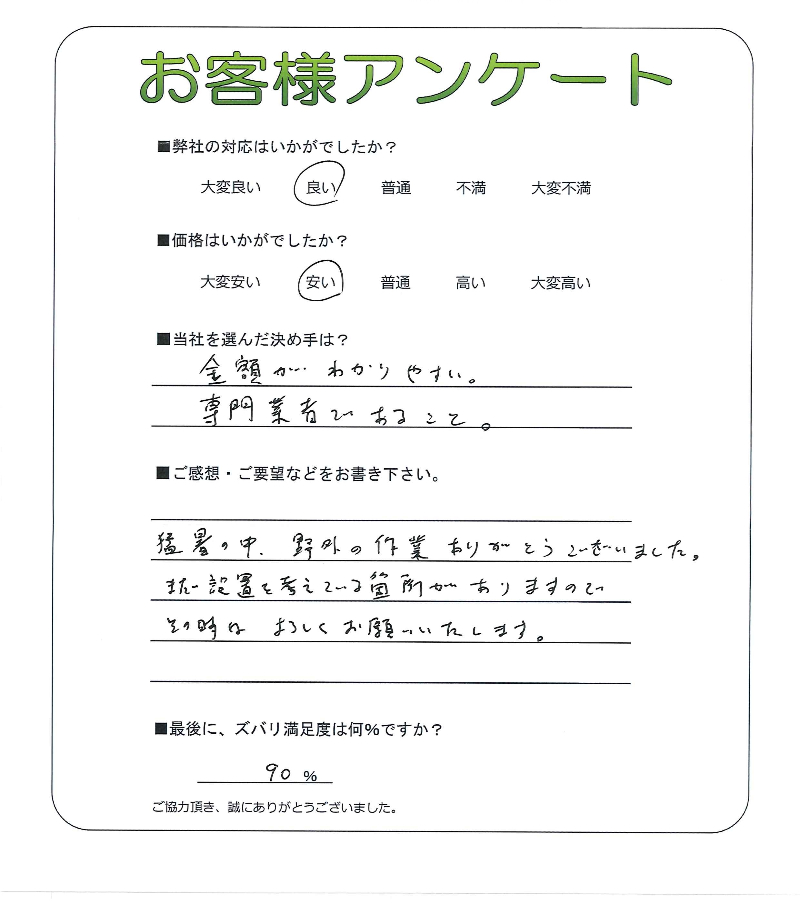 お客様アンケート
■弊社の対応はいかがでしたか？
大変良い 良い 普通 不満 大変不満
■価格はいかがでしたか？
大変安い 安い 普通 高い 大変高い
■当社を選んだ決め手は？
金額がわかりやすい。
専門業者であること。
■ご感想・ご要望などをお書き下さい。
猛暑の中、野外の作業ありがとうございました。
まだ設置を考えている箇所がありますので
その時は よろしくお願いいたします。
■最後に、ズバリ満足度は何%ですか？
90 %
ご協力頂き、誠にありがとうございました。